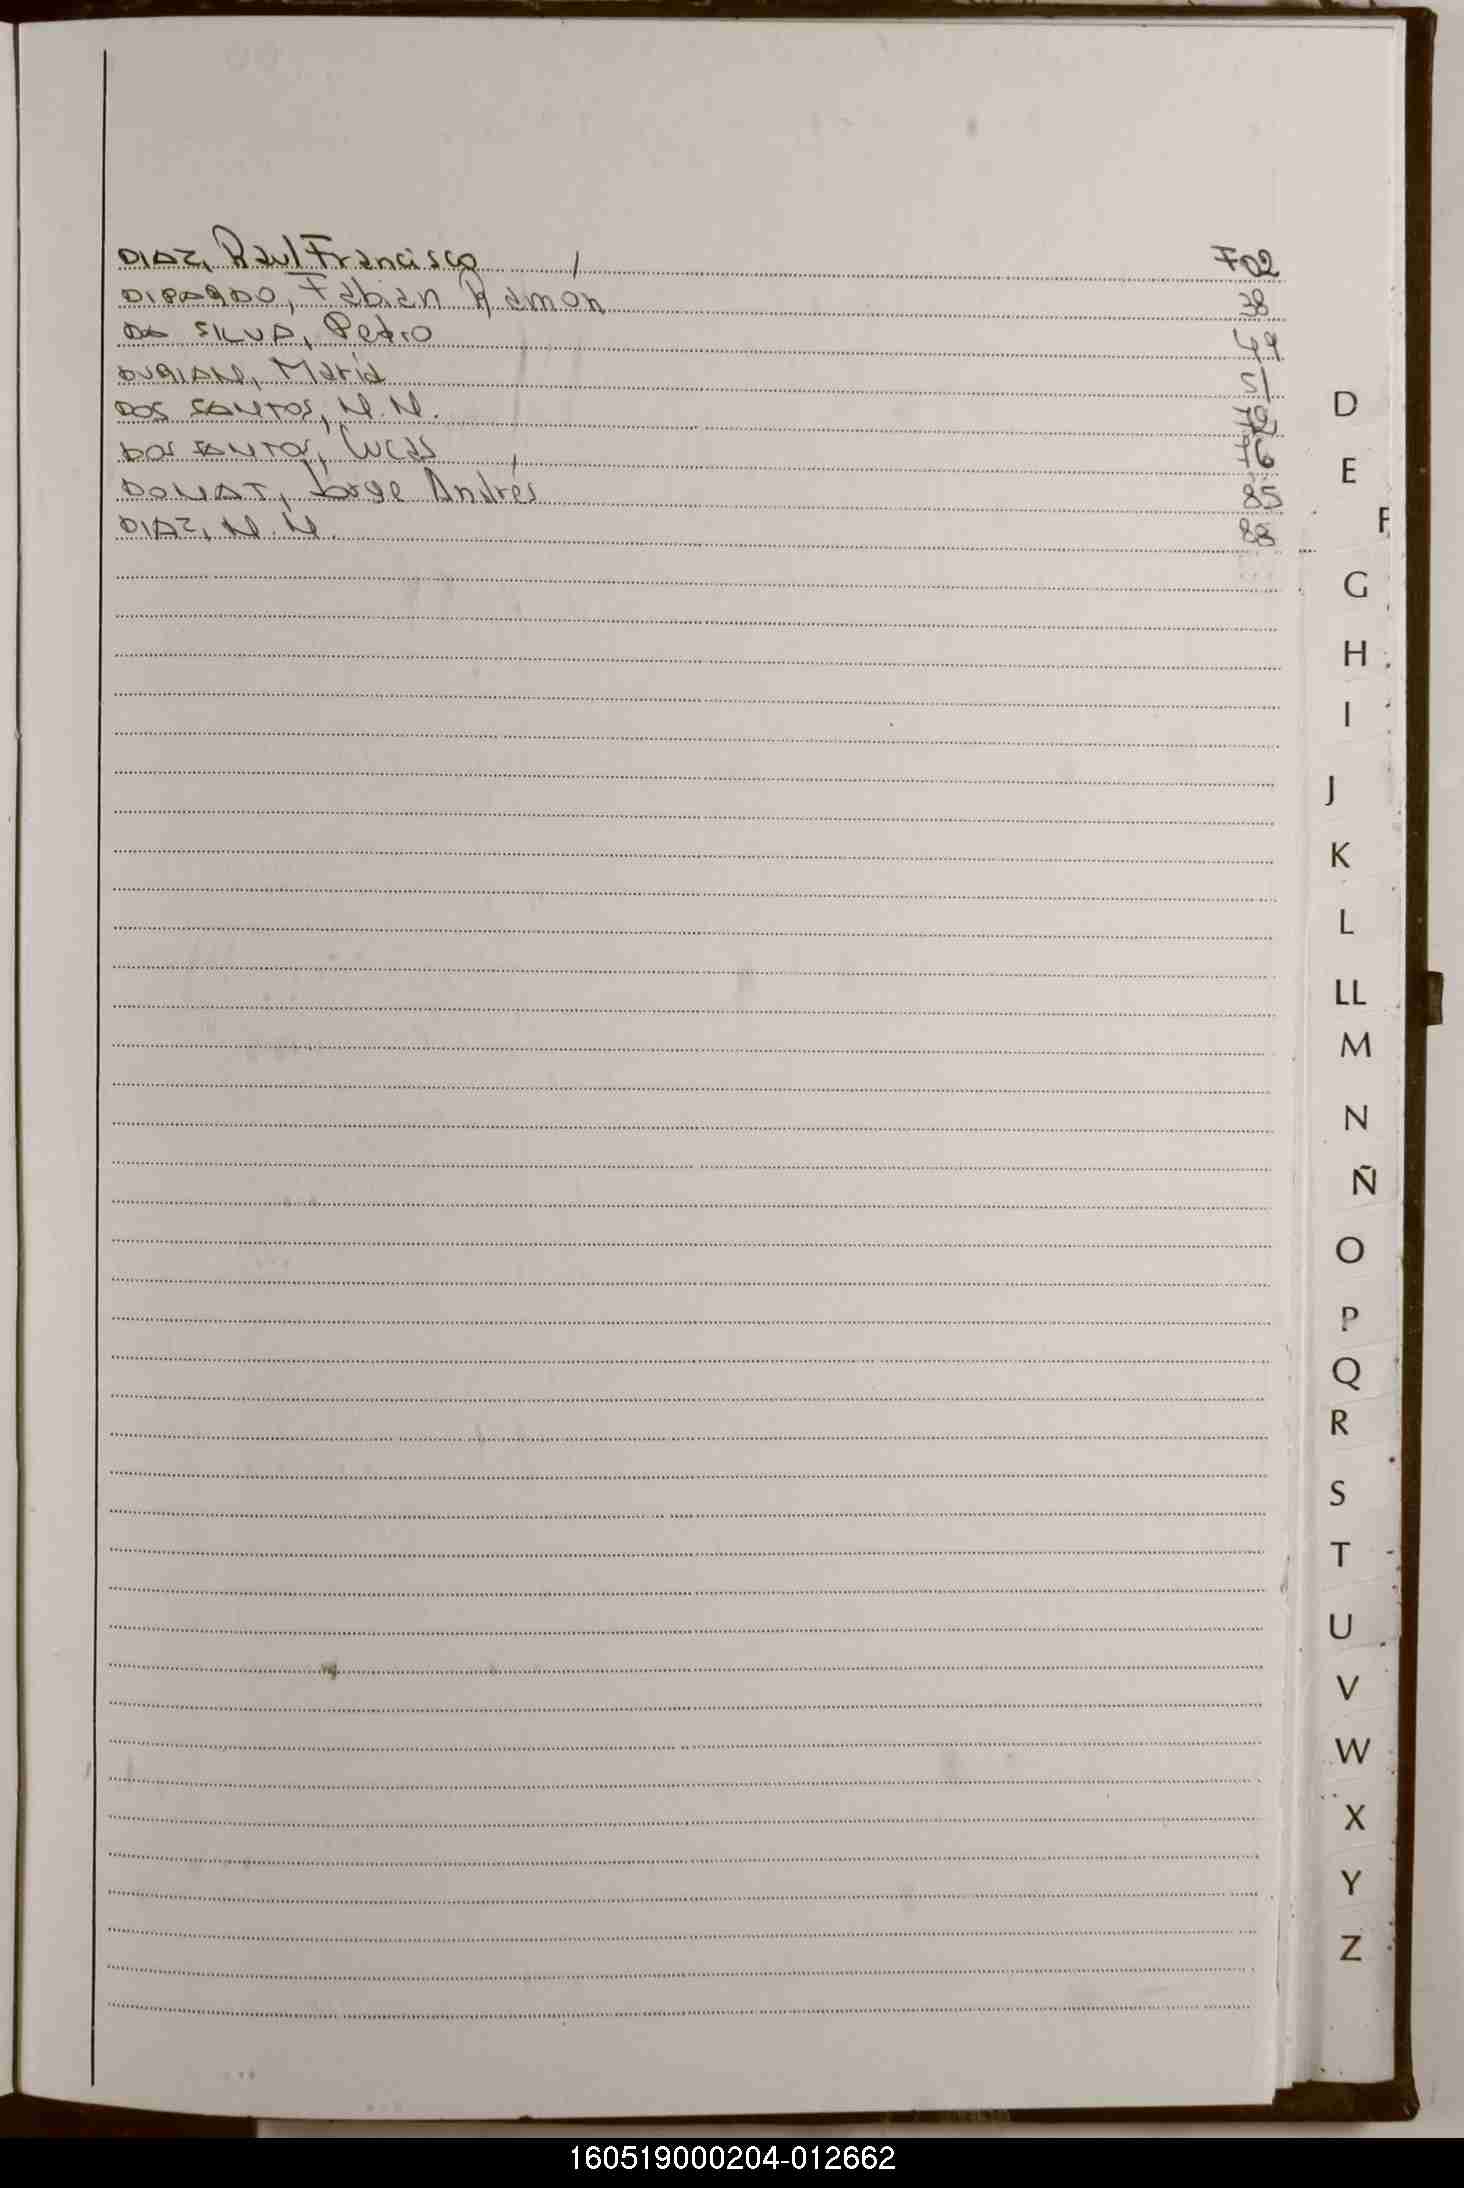 DIAZ, Raul Francisco F02
Fabian Ramon 38
DA SILVA, Pedro 49
DURIAN, Maria 51
DOS SANTOS, N.N. 72
DOS SANTOS, Lucas 76
DONAT, Jorge Andrés 85
DIAZ, N.N. 88
D
E
F
G
H
I
J
K
L
LL
M
N
Ñ
O
P
Q
R
S
T
U
V
W
X
Y
Z
160519000204-012662